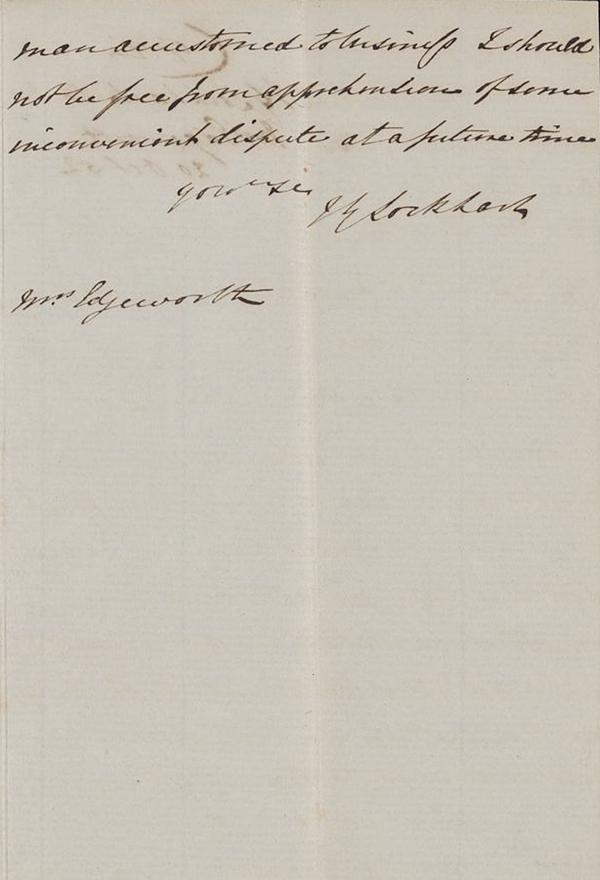 man accustomed to business I should
not be free from apprehension of some
inconvenient dispute at a future time
yours &c
J G Lockhart
Mrs Edgeworth